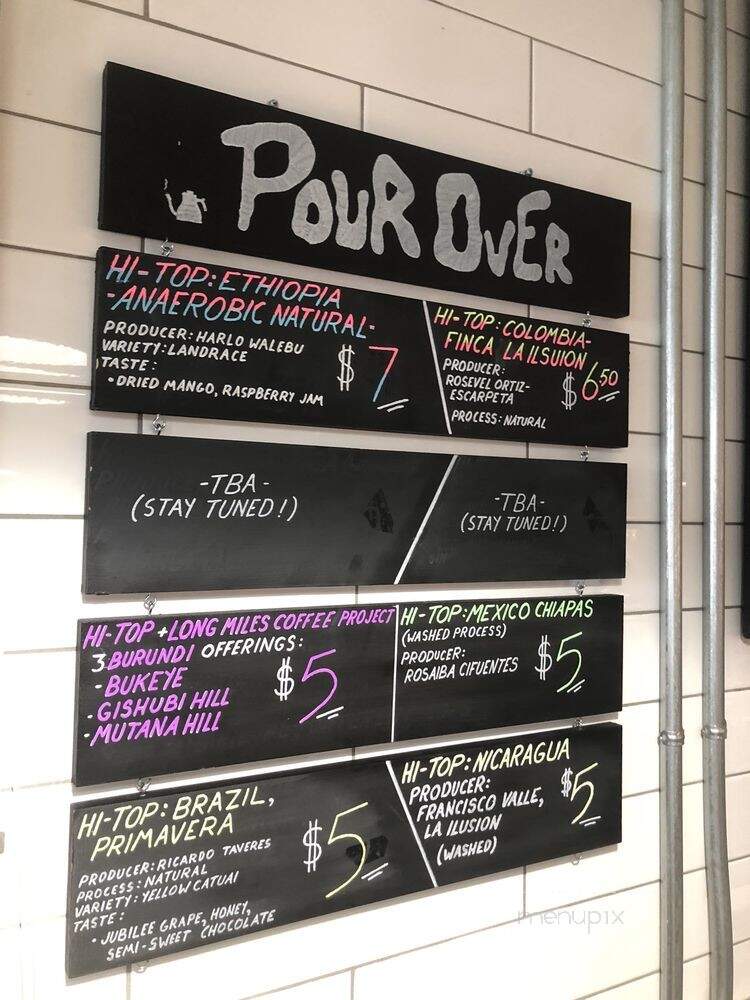 POUR OVER
HI-TOP: ETHIOPIA
-ANAEROBIC NATURAL-
PRODUCER: HARLO WALEBU
VARIETY: LANDRACE
TASTE:
• DRIED MANGO, RASPBERRY JAM
$7
HI-TOP: COLOMBIA-
FINCA LA ILSUION
PRODUCER:
ROSEVEL ORTIZ-
ESCARPETA
PROCESS: NATURAL
$6.50
-TBA-
(STAY TUNED!)
-TBA-
(STAY TUNED!)
HI-TOP + LONG MILES COFFEE PROJECT
3 BURUNDI OFFERINGS:
- BUKEYE
- GISHUBI HILL
- MUTANA HILL
$5
HI-TOP: MEXICO CHIAPAS
(WASHED PROCESS)
PRODUCER:
ROSAIBA CIFUENTES
$5
HI-TOP: BRAZIL,
PRIMAVERA
PRODUCER: RICARDO TAVERES
PROCESS: NATURAL
VARIETY: YELLOW CATUAI
TASTE:
• JUBILEE GRAPE, HONEY,
SEMI-SWEET CHOCOLATE
$5
HI-TOP: NICARAGUA
PRODUCER:
FRANCISCO VALLE,
LA ILUSION
(WASHED)
$5
menupix